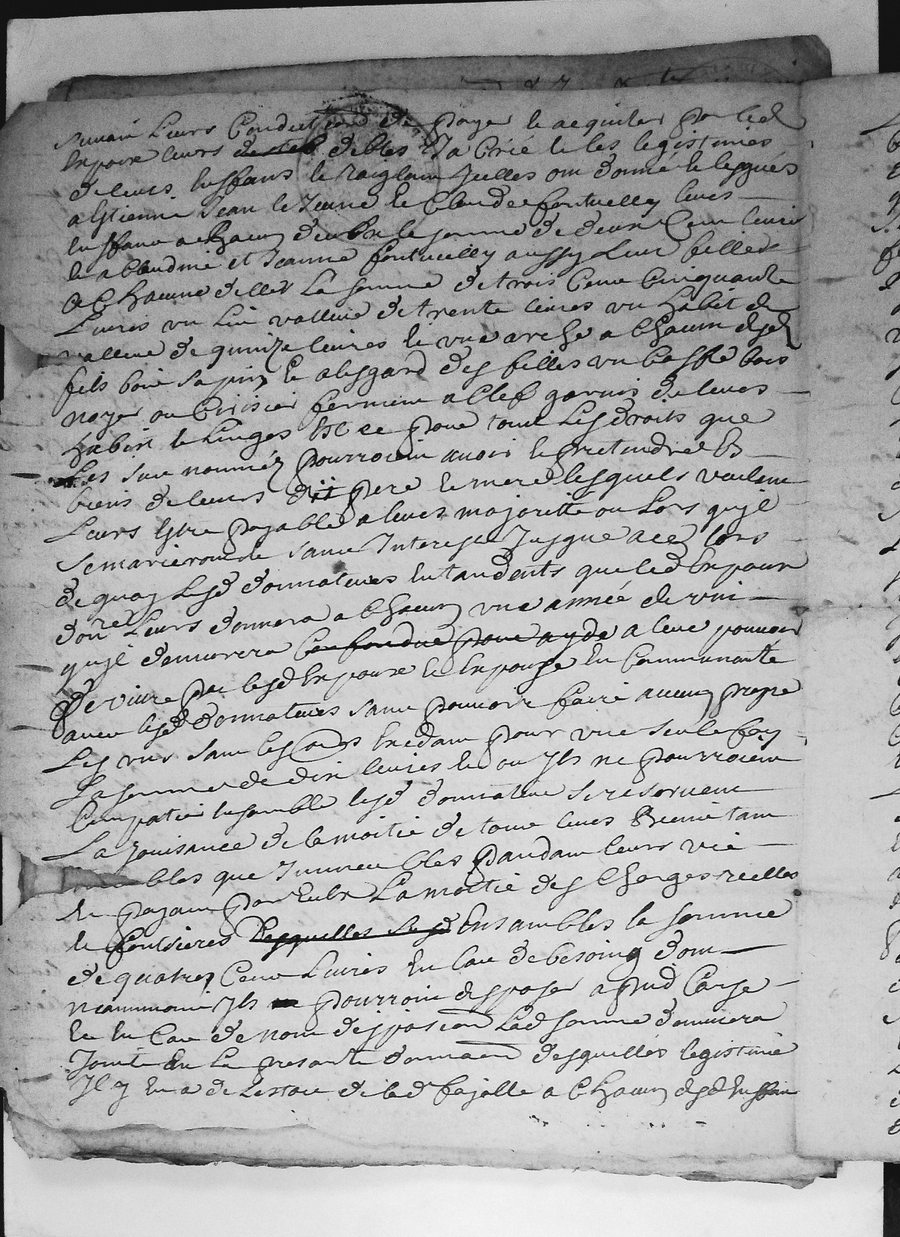 suivant Leurs Conditions de payer le acquiter par led
Espoux leurs debtes Et a Cree le les legistimes
de leurs Enffans le Raiglam Juelles ont donné le legues
a Estienne Jean le Jeune le Claude fontvielly leurs
Enffans a Chacun deulx le somme de deux Cent livres
le a Claudine et Jeanne fontvielly aussy Leur filles
a Chacune delles La somme de trois Cent Cinquante
Livres un Lit valleur de trente livres un habit de
valleur de quinze livres le une arche a Chacun desd
fils bois sapin le a lesgard des filles un Coffre bois
noyer ou Cerisier fermeure a Clef garnis de leurs
habis le linges Et ce pour tous Les droits que
Les sus nommez pourroient avoir le pretendre Es
biens de leurs dit pere le mere lesquels veulent
Leurs Estre payable a leurs majoritté ou Lors quil
se marieront sans Interest Jusque a ce lors
de quoy lesd donnateurs Entandents que led Espoux
donnera a Chacun une année de vin
quil demurera a leur pouvoir
de vivre par lesd Espoux le Espouse En Communauté
avec lesd donnateurs sans pouvoir faire aucun propre
Les uns sans les autres Excedant pour une seule foy
La somme de dix livres le ou Ils ne pourroient
Compatir Ensemble lesd donnateur se reservent
La Jouisance de la moitié de tous leurs Biens tant
meubles que Immeubles pandant leurs vie
En payant par Eulx La moitié des Charges reelles
le fonsieres Ensambles la somme
de quatres Cent Livres En Cas de besoing dont
neanmoins Ils pourront disposer a pred Carse
le En Cas de non disposion Lad somme demurera
Jointe En La presante donnaon desquelles legistime
Il y En a de led a Chacun desd Enffans